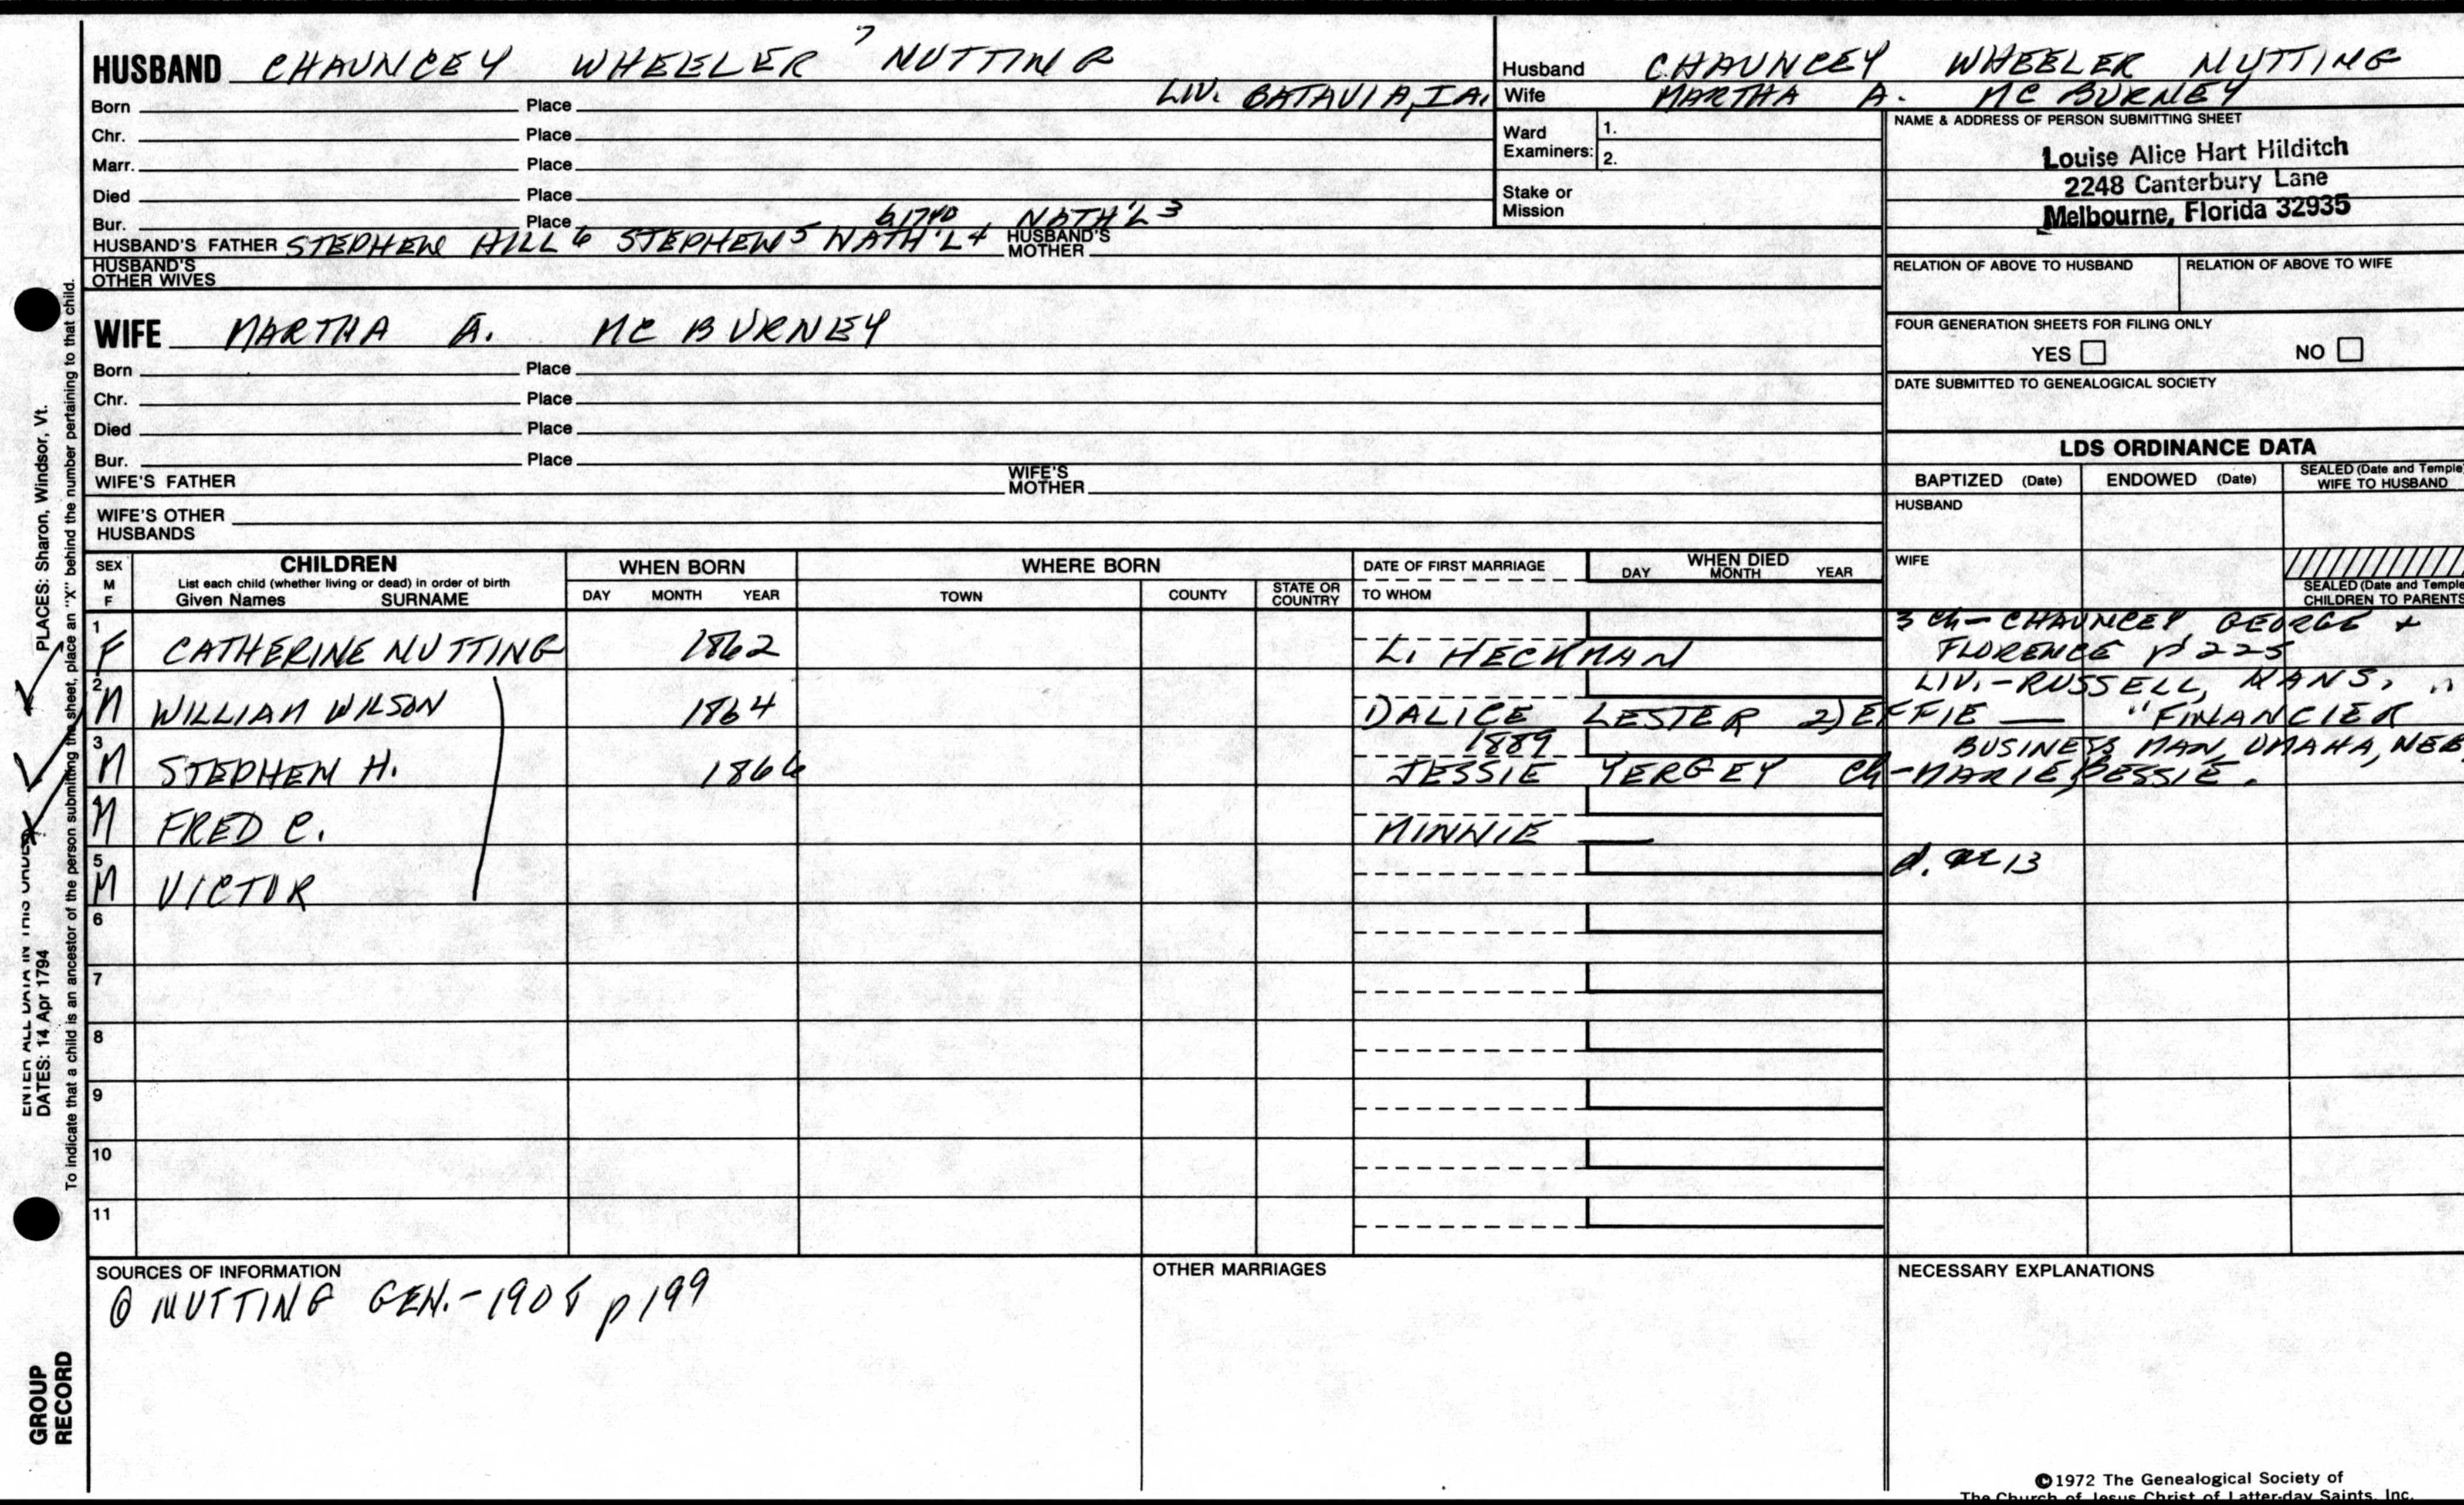 HUSBAND CHAUNCEY WHEELER 7 NUTTING
LIV. BATAVIA, IA.
Born Place
Chr. Place
Marr. Place
Died Place
Bur. Place NATH'L 3
HUSBAND'S FATHER STEPHEN HILL 6 STEPHEN 5 NATH'L 4 HUSBAND'S MOTHER
HUSBAND'S OTHER WIVES
WIFE MARTHA A. MC BURNEY
Born Place
Chr. Place
Died Place
Bur. Place
WIFE'S FATHER WIFE'S MOTHER
WIFE'S OTHER HUSBANDS
Husband CHAUNCEY WHEELER NUTTING
Wife MARTHA A. MC BURNEY
Ward Examiners: 1.
2.
Stake or Mission
NAME & ADDRESS OF PERSON SUBMITTING SHEET
Louise Alice Hart Hilditch
2248 Canterbury Lane
Melbourne, Florida 32935
RELATION OF ABOVE TO HUSBAND RELATION OF ABOVE TO WIFE
FOUR GENERATION SHEETS FOR FILING ONLY
YES NO
DATE SUBMITTED TO GENEALOGICAL SOCIETY
LDS ORDINANCE DATA
BAPTIZED (Date) ENDOWED (Date) SEALED (Date and Temple) WIFE TO HUSBAND
HUSBAND
WIFE
SEALED (Date and Temple) CHILDREN TO PARENTS
SEX M F
CHILDREN
List each child (whether living or dead) in order of birth
Given Names SURNAME
WHEN BORN
DAY MONTH YEAR
WHERE BORN
TOWN COUNTY STATE OR COUNTRY
DATE OF FIRST MARRIAGE
TO WHOM
WHEN DIED
DAY MONTH YEAR
3 ch - CHAUNCEY GEORGE +
1 F CATHERINE NUTTING 1862 L. HECKMAN FLORENCE p 225
LIV. - RUSSELL, KANS.
2 M WILLIAM WILSON 1864 1) ALICE LESTER 2) EFFIE — "FINANCIER
1889 BUSINESS MAN, OMAHA, NEB
3 M STEPHEN H. 1866 JESSIE YERGEY ch - MARIE, BESSIE.
4 M FRED C. MINNIE —
5 M VICTOR d. ae 13
6
7
8
9
10
11
SOURCES OF INFORMATION
NUTTING GEN. - 1908 p 199
OTHER MARRIAGES
NECESSARY EXPLANATIONS
©1972 The Genealogical Society of
The Church of Jesus Christ of Latter-day Saints, Inc.
ENTER ALL DATA IN THIS ORDER:
DATES: 14 Apr 1794 PLACES: Sharon, Windsor, Vt.
To indicate that a child is an ancestor of the person submitting the sheet, place an "X" behind the number pertaining to that child.
GROUP
RECORD